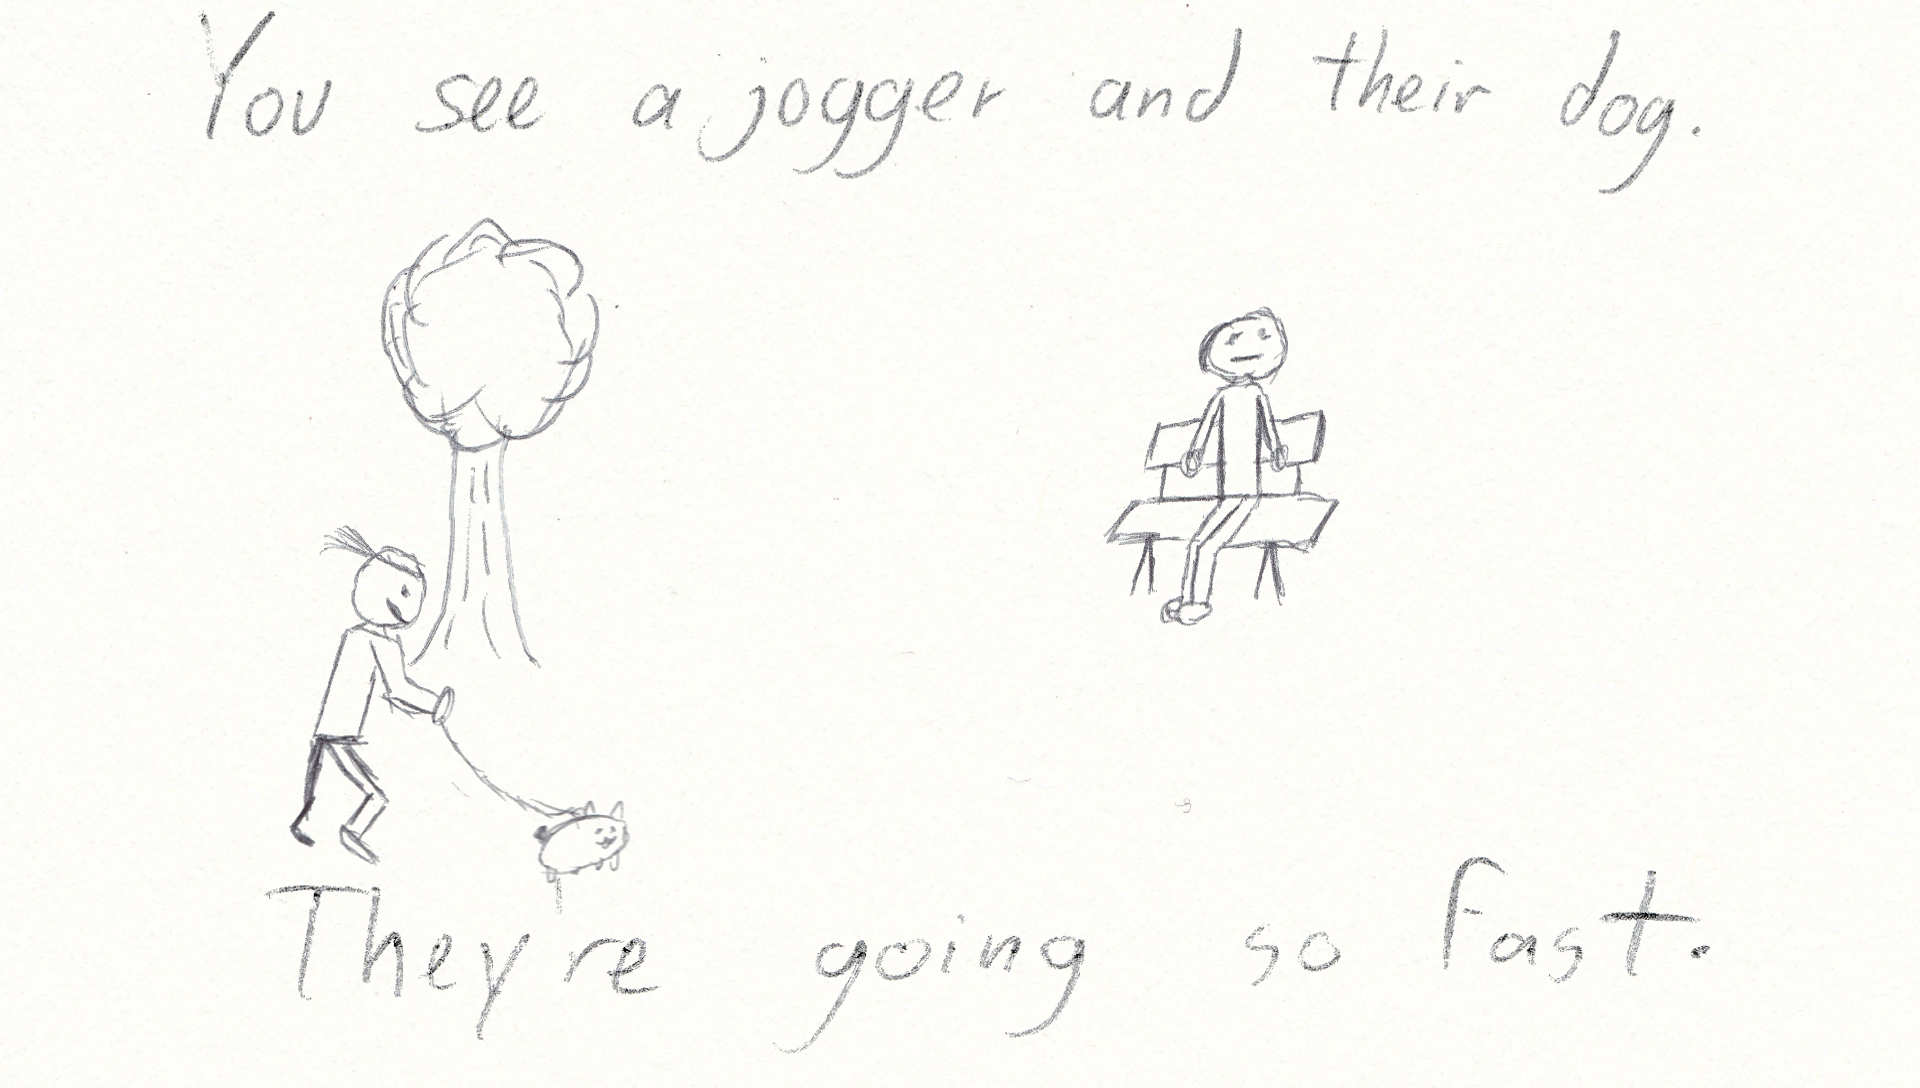 You see a jogger and their dog.
They're going so fast.